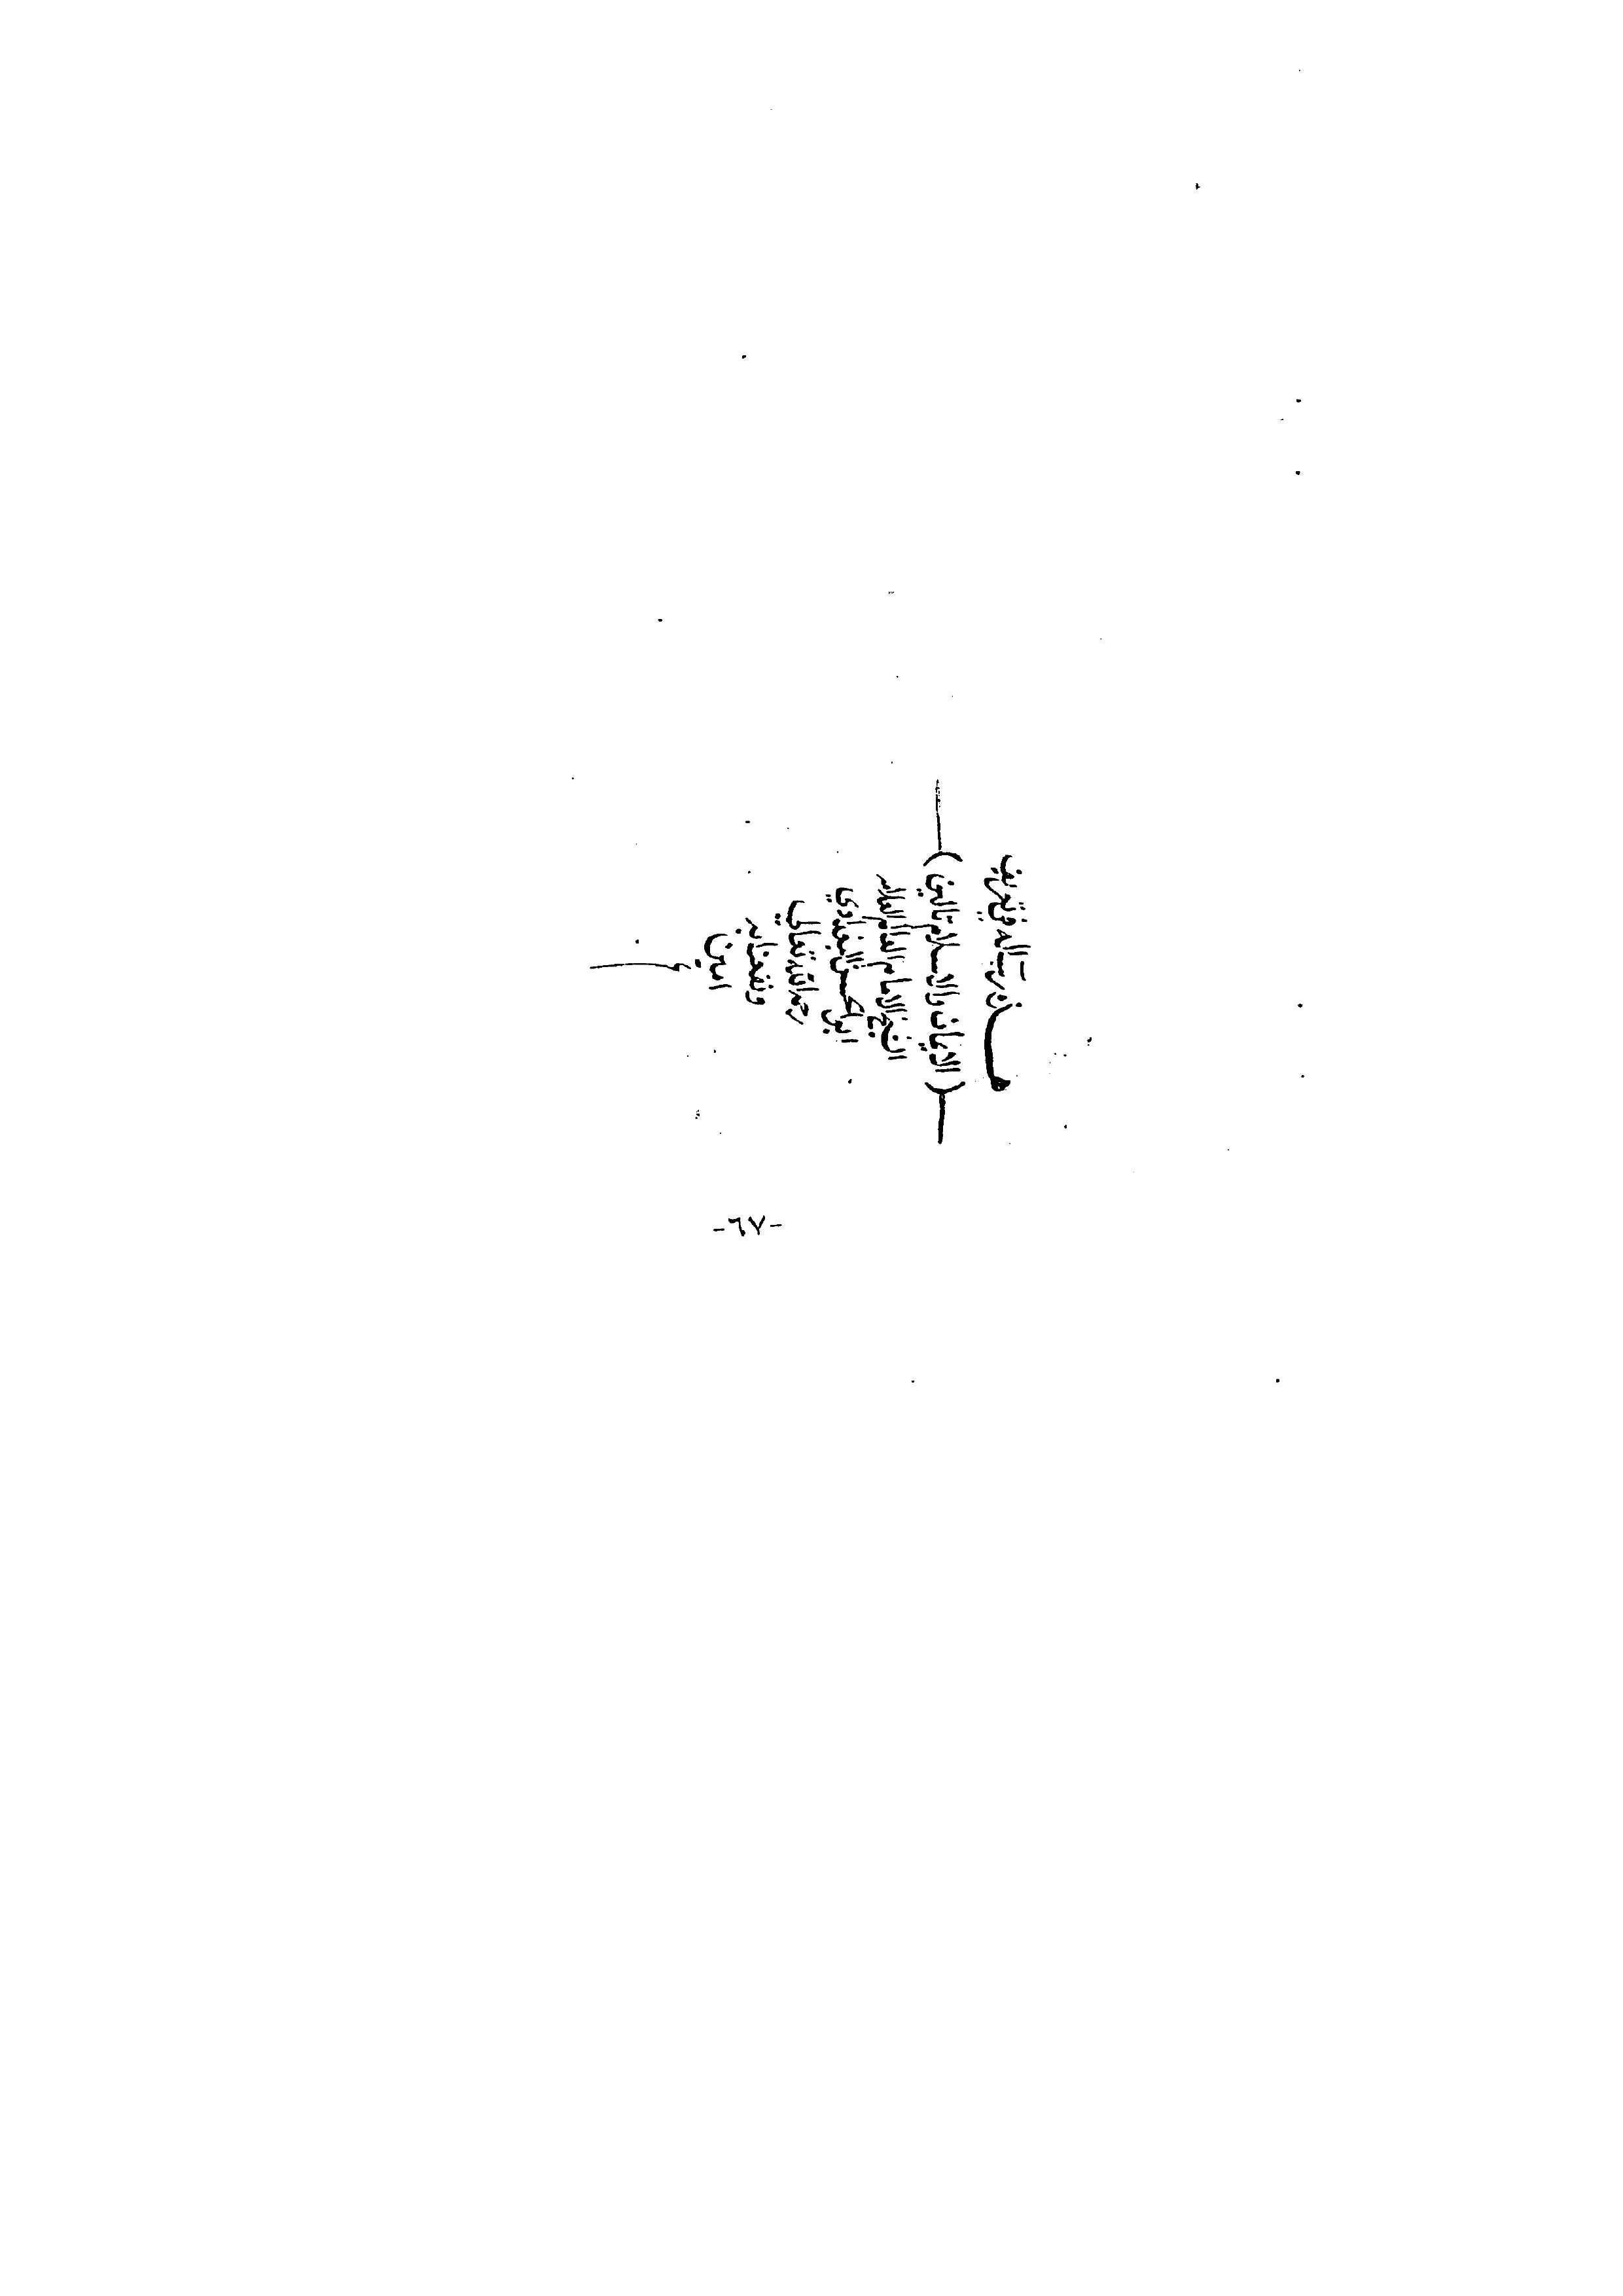 هـــذه رسالة في تعريف
(الايمان والاسلام تاليف)
الشيخ الامام العالم العلامه
ابي الحسن البغدادي
رحمه الله تعالى
ونفعنا به
امين
-٦٧-